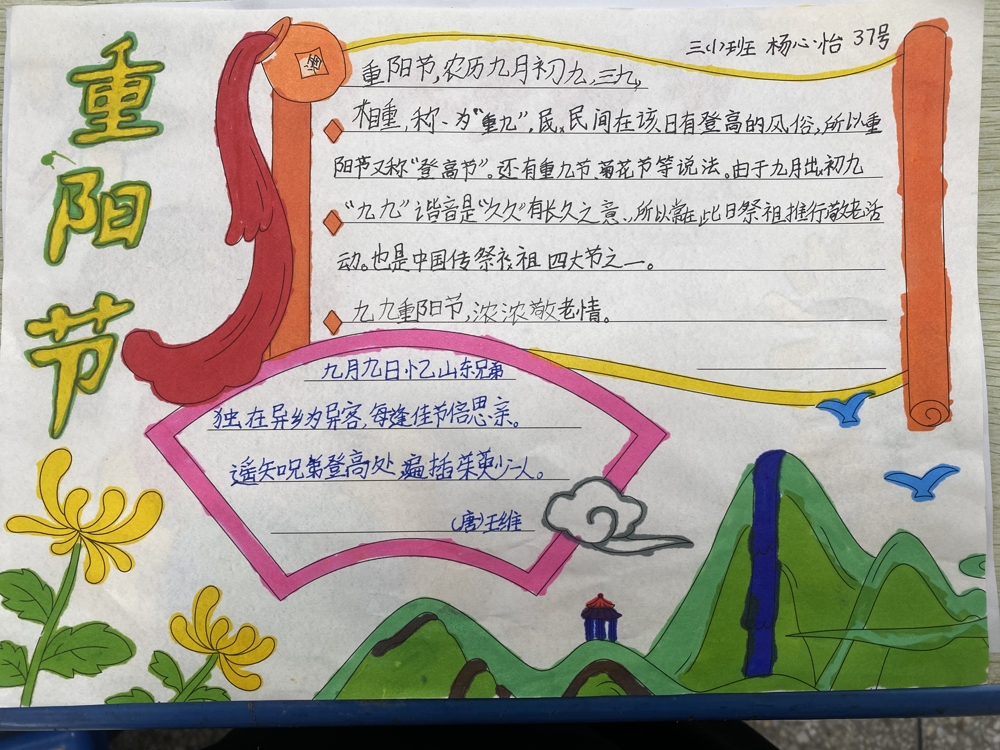 重阳节
三(小)班 杨心怡 37号
重阳节,农历九月初九,二九
相重,称、为“重九”,民,民间在该日有登高的风俗,所以重
阳节又称“登高节”。还有重九节、菊花节等说法。由于九月出初九
“九九”谐音是“久久”有长久之意、,所以常在此日祭祖推行敬老活
动。也是中国传祭祖 四大节之一。
九九重阳节,浓浓敬老情。
九月九日忆山东兄弟
独在异乡为异客,每逢佳节倍思亲。
遥知兄弟登高处 遍插茱萸少一人。
(唐)王维